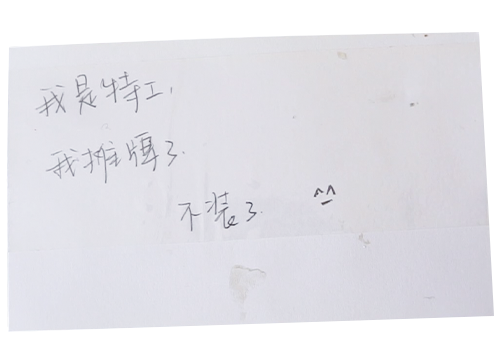 我是特工，
我摊牌了.
不装了. ^_^